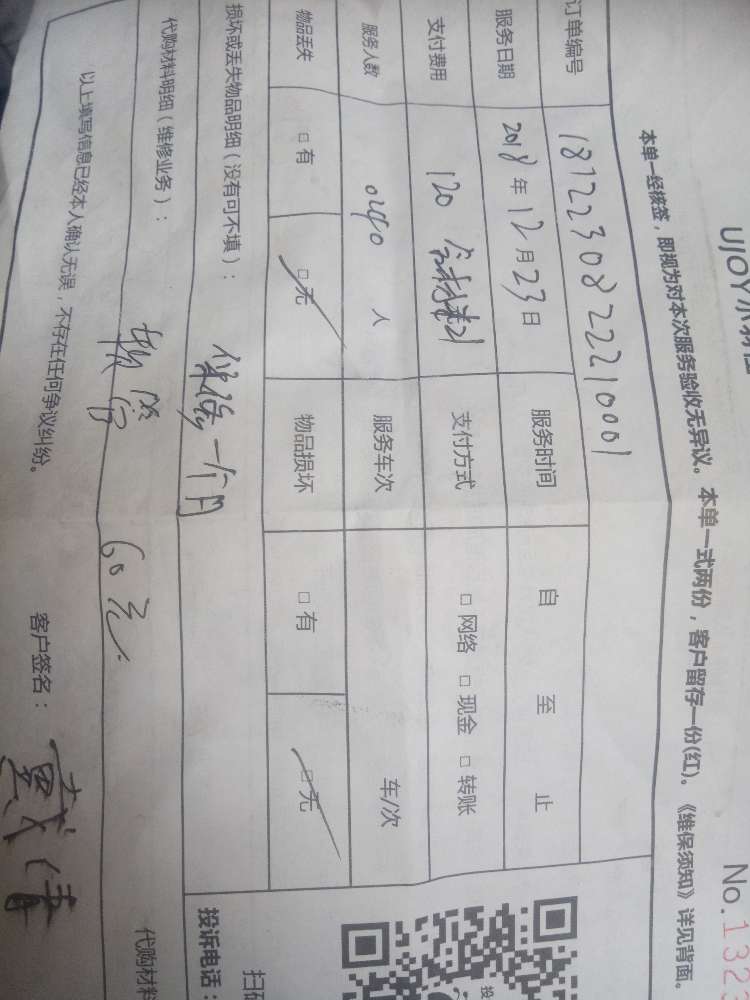 UJOY
No.1323
本单一经核签，即视为对本次服务验收无异议。本单一式两份，客户留存一份(红)。《维保须知》详见背面。
订单编号 1812230822210001
服务日期 2018年12月23日 服务时间 自 至 止
支付费用 120 支付方式 □网络 □现金 □转账
服务人数 人 服务车次 车/次
物品丢失 □有 □无 物品损坏 □有 □无
损坏或丢失物品明细（没有可不填）： 保修一个月
代购材料明细（维修业务）： 软管 60元
代购材料
以上填写信息已经本人确认无误，不存在任何争议纠纷。 客户签名：
投诉电话：